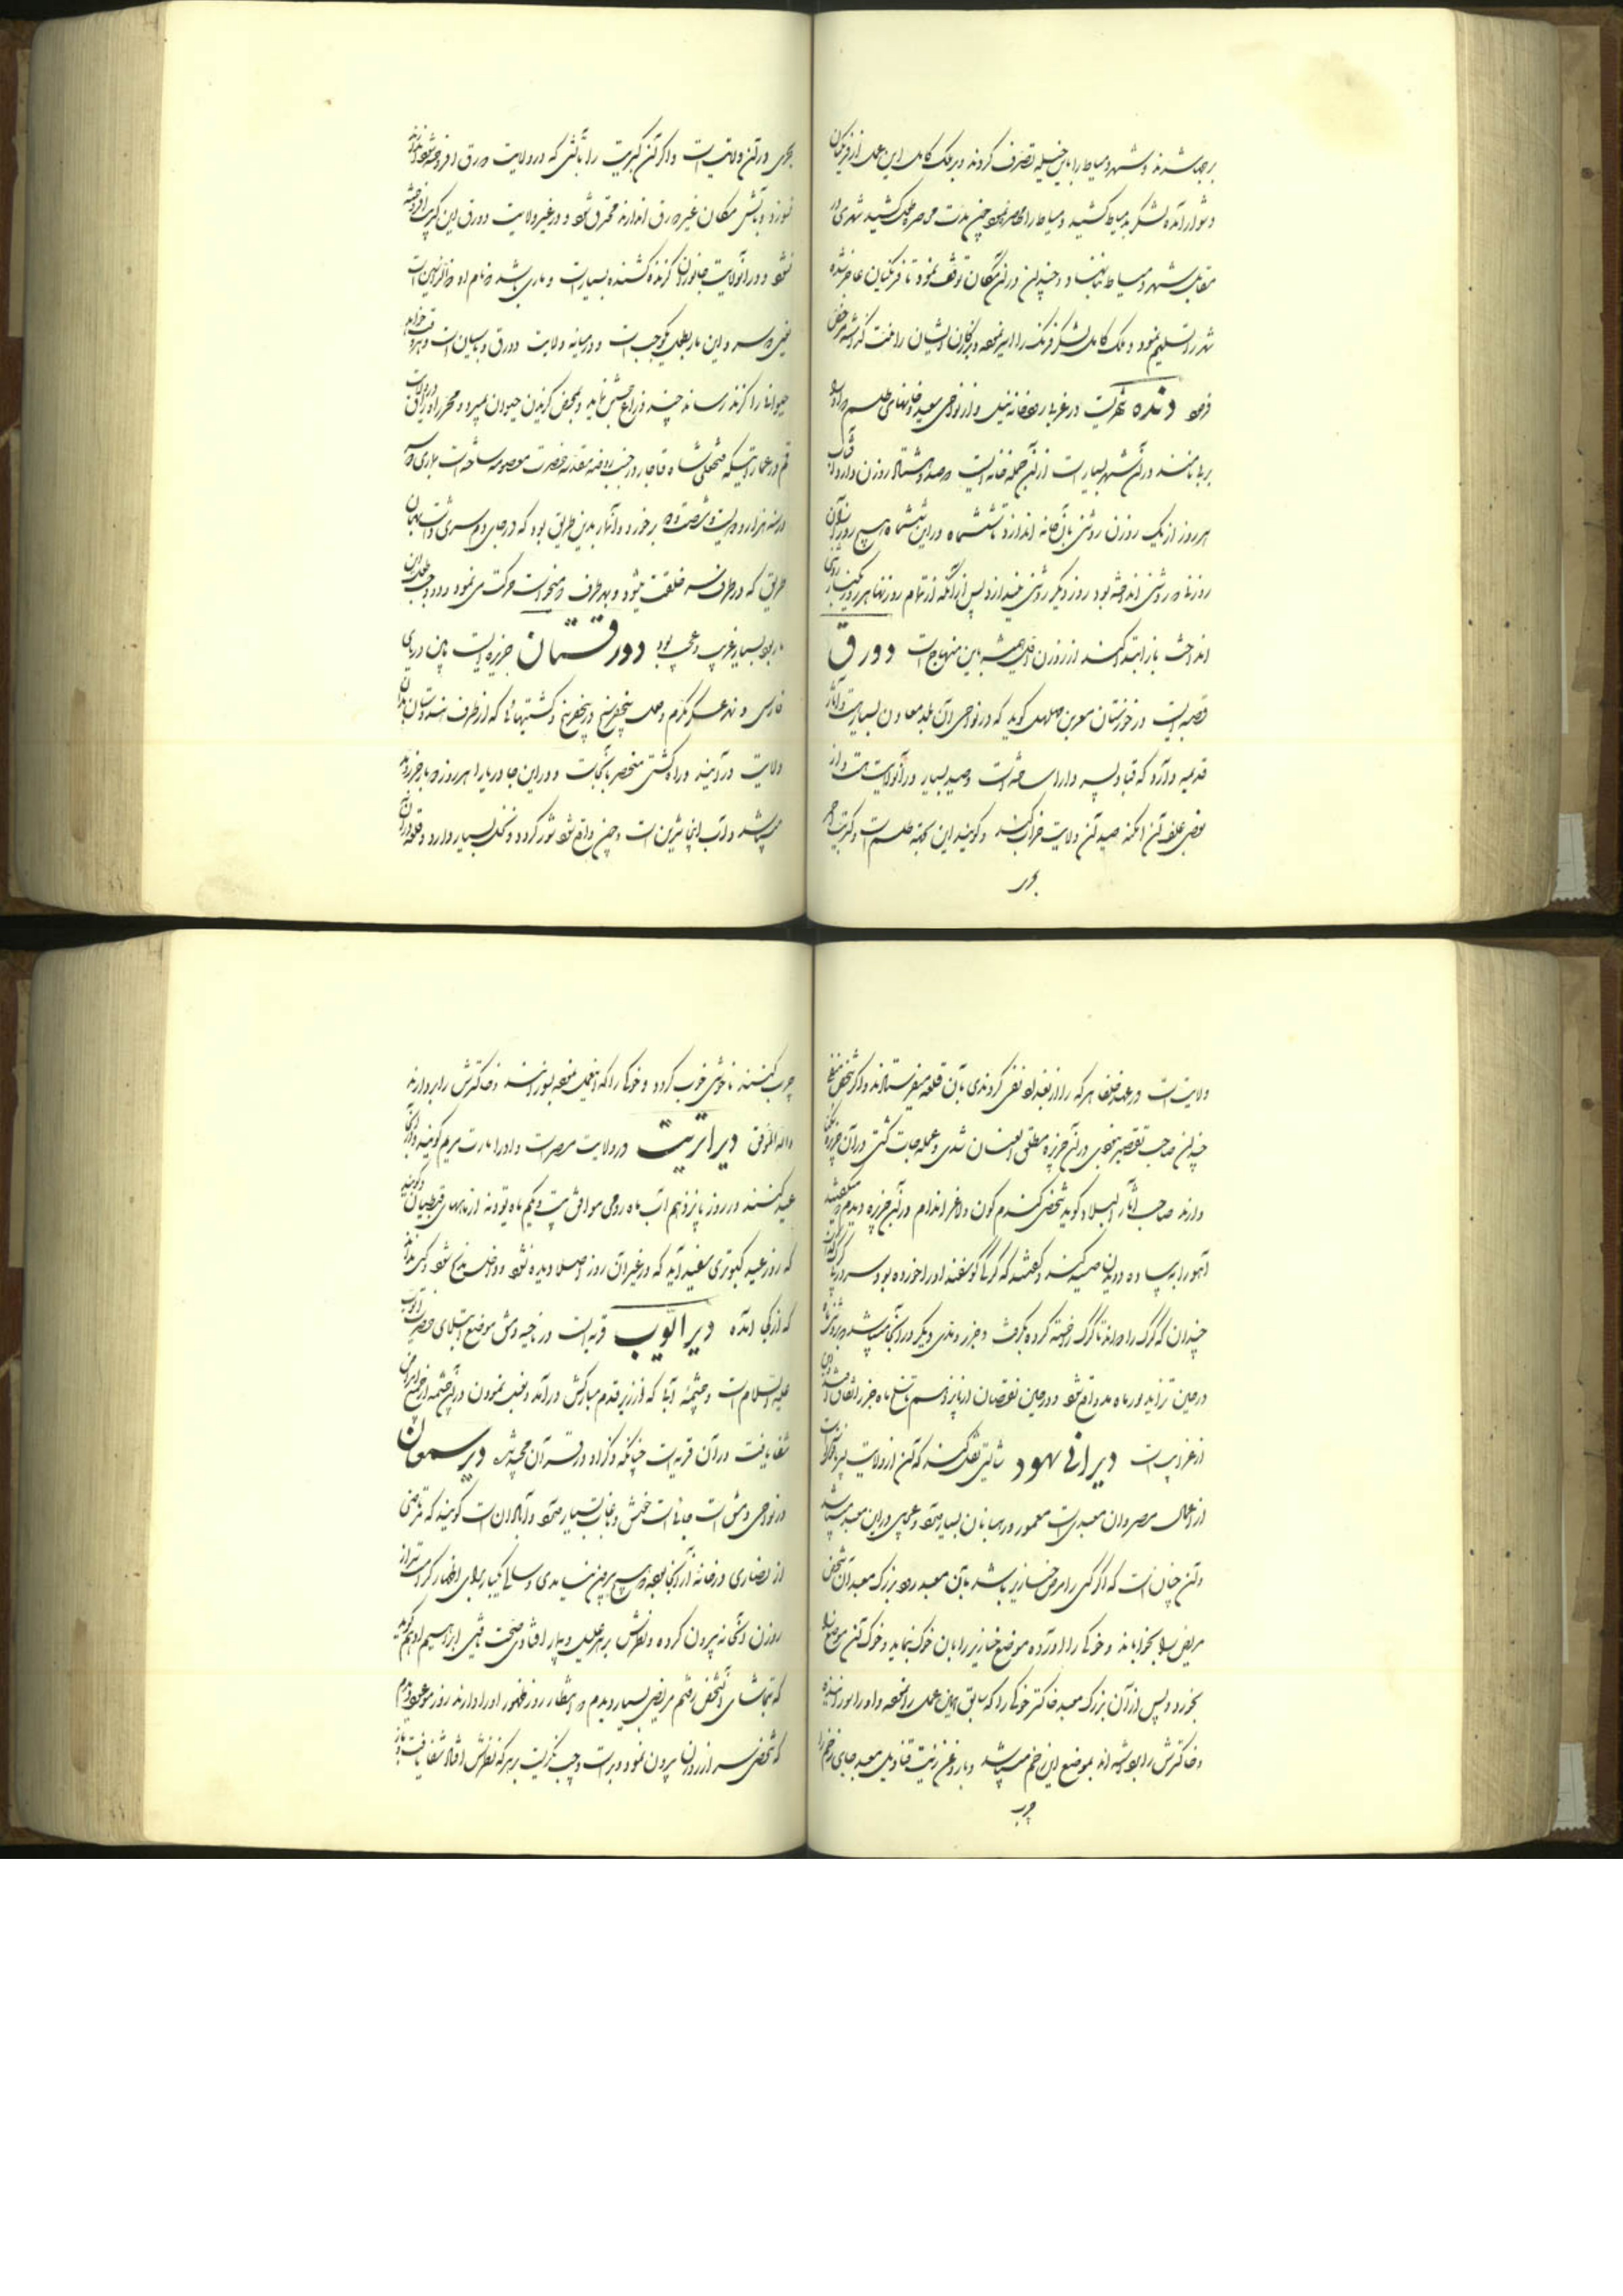 بر جا شدند و شهر دمیاط را باین حیله تصرف کردند و بر ملک کامل این عمل از فرنگیان
دشوار آمده لشکر بدمیاط کشید و دمیاط را محاصره نمود چون مدت محاصره بطول کشید شهری در
مقابل شهر دمیاط بنا نهاد و چندان در آن مکان توقف نمود تا فرنگیان عاجز شده
شهر را تسلیم نمود و ملک کامل لشکر فرنگ را اسیر نموده و بزرگان ایشان را منت گذاشته مرخص
فرمود دنده شهریست در غربی رودخانه نیل و از نواحی صعید و خانهای طلسم
بربا مانند در آن شهر بسیار است از آن جمله خانه ایست صد و هشتاد روزن دارد و آفتاب
هر روز از یک روزن روشنی بآن خانه اندازد تا ششماه و در این ششماه هیچ روز از آن
روزنها که روشنی انداخته بود روز دیگر روشنی نیندازد پس از آنکه از تمام روزنها هر روز یکبار روشنی
انداخت باز ابتدا کند از روزن اول همیشه باین منهاج است دورق
قصبه ایست در خوزستان مسعر بن مهلهل گوید که در نواحی آن بلد معادن بسیار است و آثار
قدیمه دارد که قباد پسر دارا ساخته است و صید بسیار در آن ولایت هست و از
بعضی علف آن امکنه صید آن ولایت خراب کند و گویند این بجهة طلسم است و کبریت احمر
بحری
بحری در آن ولایت است و اگر آن کبریت را بآتشی که در ولایت دورق افروخته شود اندازند
نسوزد و بآتش مکان غیر دورق اندازند محترق شود و در غیر ولایت دورق این کبریت افروخته
نشود و در آن ولایت جانوران گزنده کشنده بسیار است و ماری باشد
یعنی و این مار بطول یکوجب است و در میانه ولایت دورق و باسیان است و هر وقت خواهد
حیوانها را گزند رساند چند ذراع جستن نماید و بمحض گزیدن حیوان بمیرد و محرر اوراق در ولایت
قم در عماراتیکه فتحعلی شاه قاجار در جنب روضه مقدسه حضرت معصومه ساخته است بماری
در سنه هزار و دویست و شصت و برخورد و آنمار بدین طریق بود که در جای دم سری داشت بهمان
طریق که در طرف سر خلقت میشود و بهر طرف که میخواست حرکت می نمود
مار بود بسیار غریب و عجیب بود دورقستان جزیره ایست مابین دریای
فارس و نهر عسکر مکرم وصل پنجفرسخ در پنجفرسخ و کشتیهائی که از طرف هندوستان بدان
ولایت در آیند و راه کشتی منحصر بآنجاست و در این جا دریا را هر روز دو بار جزر و مد
میباشد و آب اینجا شیرین است و چون مد واقع شود شور گردد و نخل بسیار دارد و قلعه در آن
ولایت است و در عهد خلفا هر که را از بغداد نفی کردندی بآن قلعه میفرستادند و اگر شخص منفی
چندان صاحب تقصیر نبودی در آن جزیره مطلق العنان شدی و عمله جات کشتی در آن جزیره
دارند صاحب آثار البلاد گوید شخصی گندم گون و لاغر اندام در آن جزیره دیدم که میگفتند
آهو را پیاده دویدن صید کند و گفتند که گرگی گوسفند او را خورده بود سر در پی
چندان که گرگ را دواند تا گرگ را خسته کرده بگرفت و جزر و مدی دیگر در آنجا میباشد
در حین تزاید نور ماه مد واقع شود و در حین نقصان از پانزدهم تا سلخ ماه جزر اتفاق افتد
از غرایب است دیر انبا هود شابشتی نقل کند که آن از ولایت
از اعمال مصر و آن معبدیست معمور و رهبانان بسیار بود و عجایبی در این معبد میباشد
و آن چنان است که اگر کسی را مرض خنازیر باشد بآن معبد رود بزرگ معبد آن شخص
مریض را بخواباند و خوکی را آورده موضع خنازیر را بآن خوک بنماید و خوک آن موضع را
بخورد و پس از آن بزرگ معبد خاکستر خوکی را که سابق همین عمل را نموده و او را سوزانیده
و خاکسترش را برداشته اند بموضع این زخم میپاشد و با روغن زیت قنادیل معبد جای زخم را
چرب
چرب کنند تا خوش خوب گردد و خوکی را که اینعمل نموده بسوزانند و خاکسترش را بردارند
والله الموفق دیر اتریت در ولایت مصر است و او را مارت مریم گویند و در آنجا
عید کنند در روز پانزدهم آب ماه رومی موافق بیست و یکم ماه بئونه از ماههای قبطیان و گویند
که روز عید کبوتری سفید آید که در غیر آن روز اصلا دیده نشود و داخل مذبح شود و کسی نداند
که از کجا آمده دیر ایوب قریه است در ناحیه دمشق موضع ابتلای حضرت ایوب
علیه السلام است و چشمه آبی که از زیر قدم مبارکش در آمد و غسل نمودن در آن چشمه از جمیع امراض
شفا یافت در آن قریه است چنانکه ذکر او در قرآن مجید شده دیر سمعان
در نواحی دمشق است جائیست خوش و باغات بسیار و آبادان است گویند که مرتاضی
از نصاری در خانه از آنجا بود که هیچ بیرون نیامدی و سالی یکبار سر از
روزن آن خانه بیرون کرده و نظرش بر هر علیل و بیمار افتادی صحت یافتی ابراهیم ادهم گوید
که بتماشای آن شخص رفتم مریض بسیار دیدم که انتظار روز ظهور او را دارند روز موعود دیدم
که شخصی سر از روزن بیرون نمود و براست و چپ نگریست بر هر که نظرش افتاد شفا یافت و باز